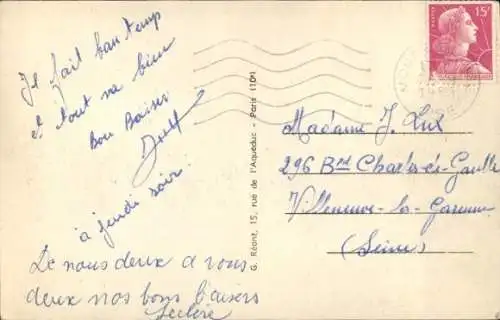 Il fait bon temps
et tout va bien
Bon Baiser
à jeudi soir
De nous deux a vous
deux nos bons baisers
Leclère
G. Réant, 15, rue de l'Aqueduc - Paris (10e)
15F
Madame J. Lux
296 Bnd Charles-de-Gaulle
Villeneuve-la-Garenne
(Seine)